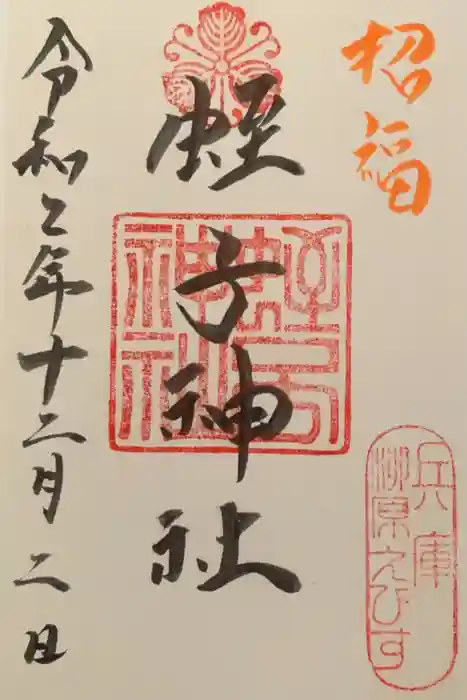 招福
兵庫
柳原えびす
蛭子神社
蛭子神社
令和二年十二月二日